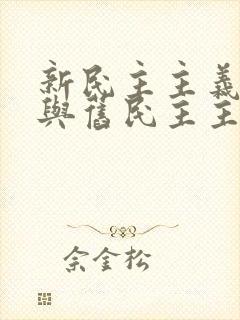 新民主主義
與舊民主主
佘金松